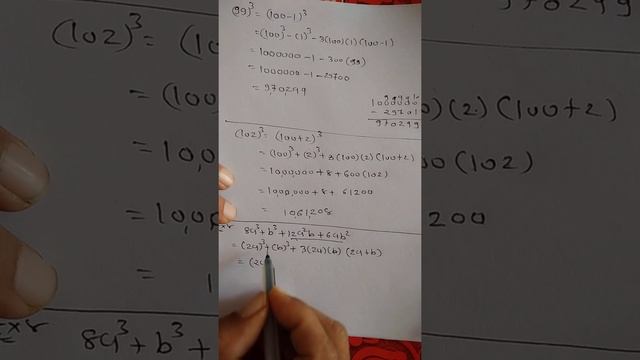 (99)³ = (100-1)³
= (100)³ - (1)³ - 3(100)(1) (100-1)
= 1000000 - 1 - 300 (99)
= 1000000 - 1 - 29700
= 970299
1000000
- 29701
970299
(102)³ = (100+2)³
= (100)³ + (2)³ + 3(100)(2) (100+2)
= 10,00,000 + 8 + 600 (102)
= 10,00,000 + 8 + 61200
= 1061208
8a³ + b³ + 12a²b + 6ab²
= (2a)³ + (b)³ + 3(2a)(b) (2a+b)
= (2a